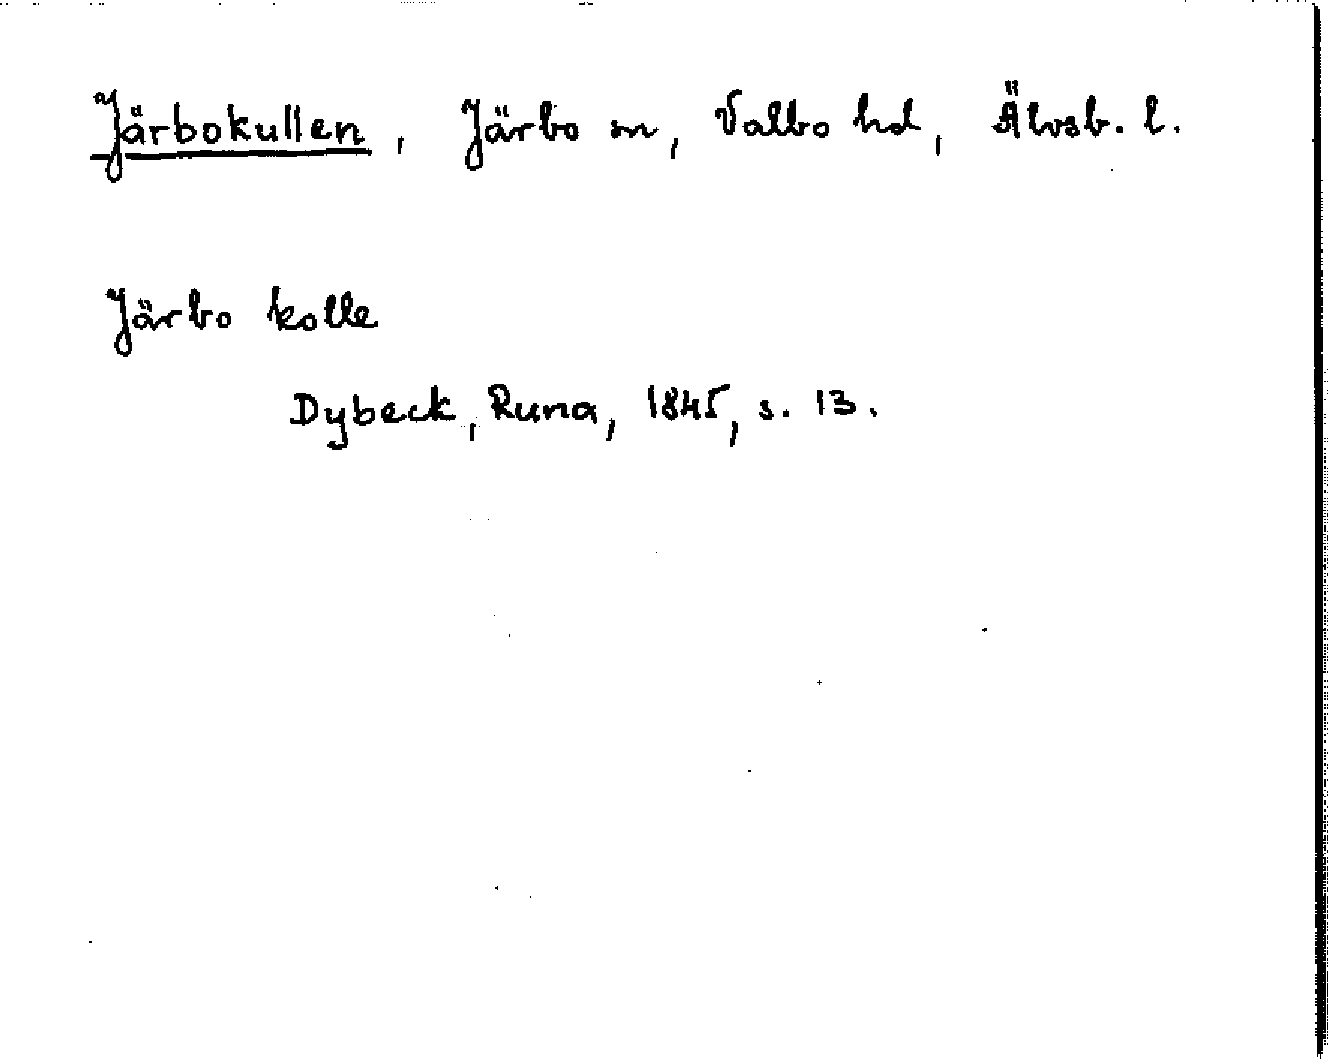 Järbokullen, Järbo sn, Valbo hd, Älvsb. l.
Järbo kolle
Dybeck, Runa, 1845, s. 13.